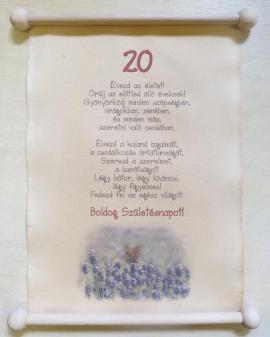 20
Élvezd az életet!
Örülj az előtted álló éveknek!
Gyönyörködj minden szépségben,
virágokban, zenében,
és minden más,
szeretni való csodában.
Élvezd a kaland izgalmát,
a csodálkozás ártatlanságát,
Szeresd a szerelmet,
a barátságot!
Légy bátor, légy kíváncsi,
légy figyelmes!
Fedezd fel az egész világot!
Boldog Születésnapot!